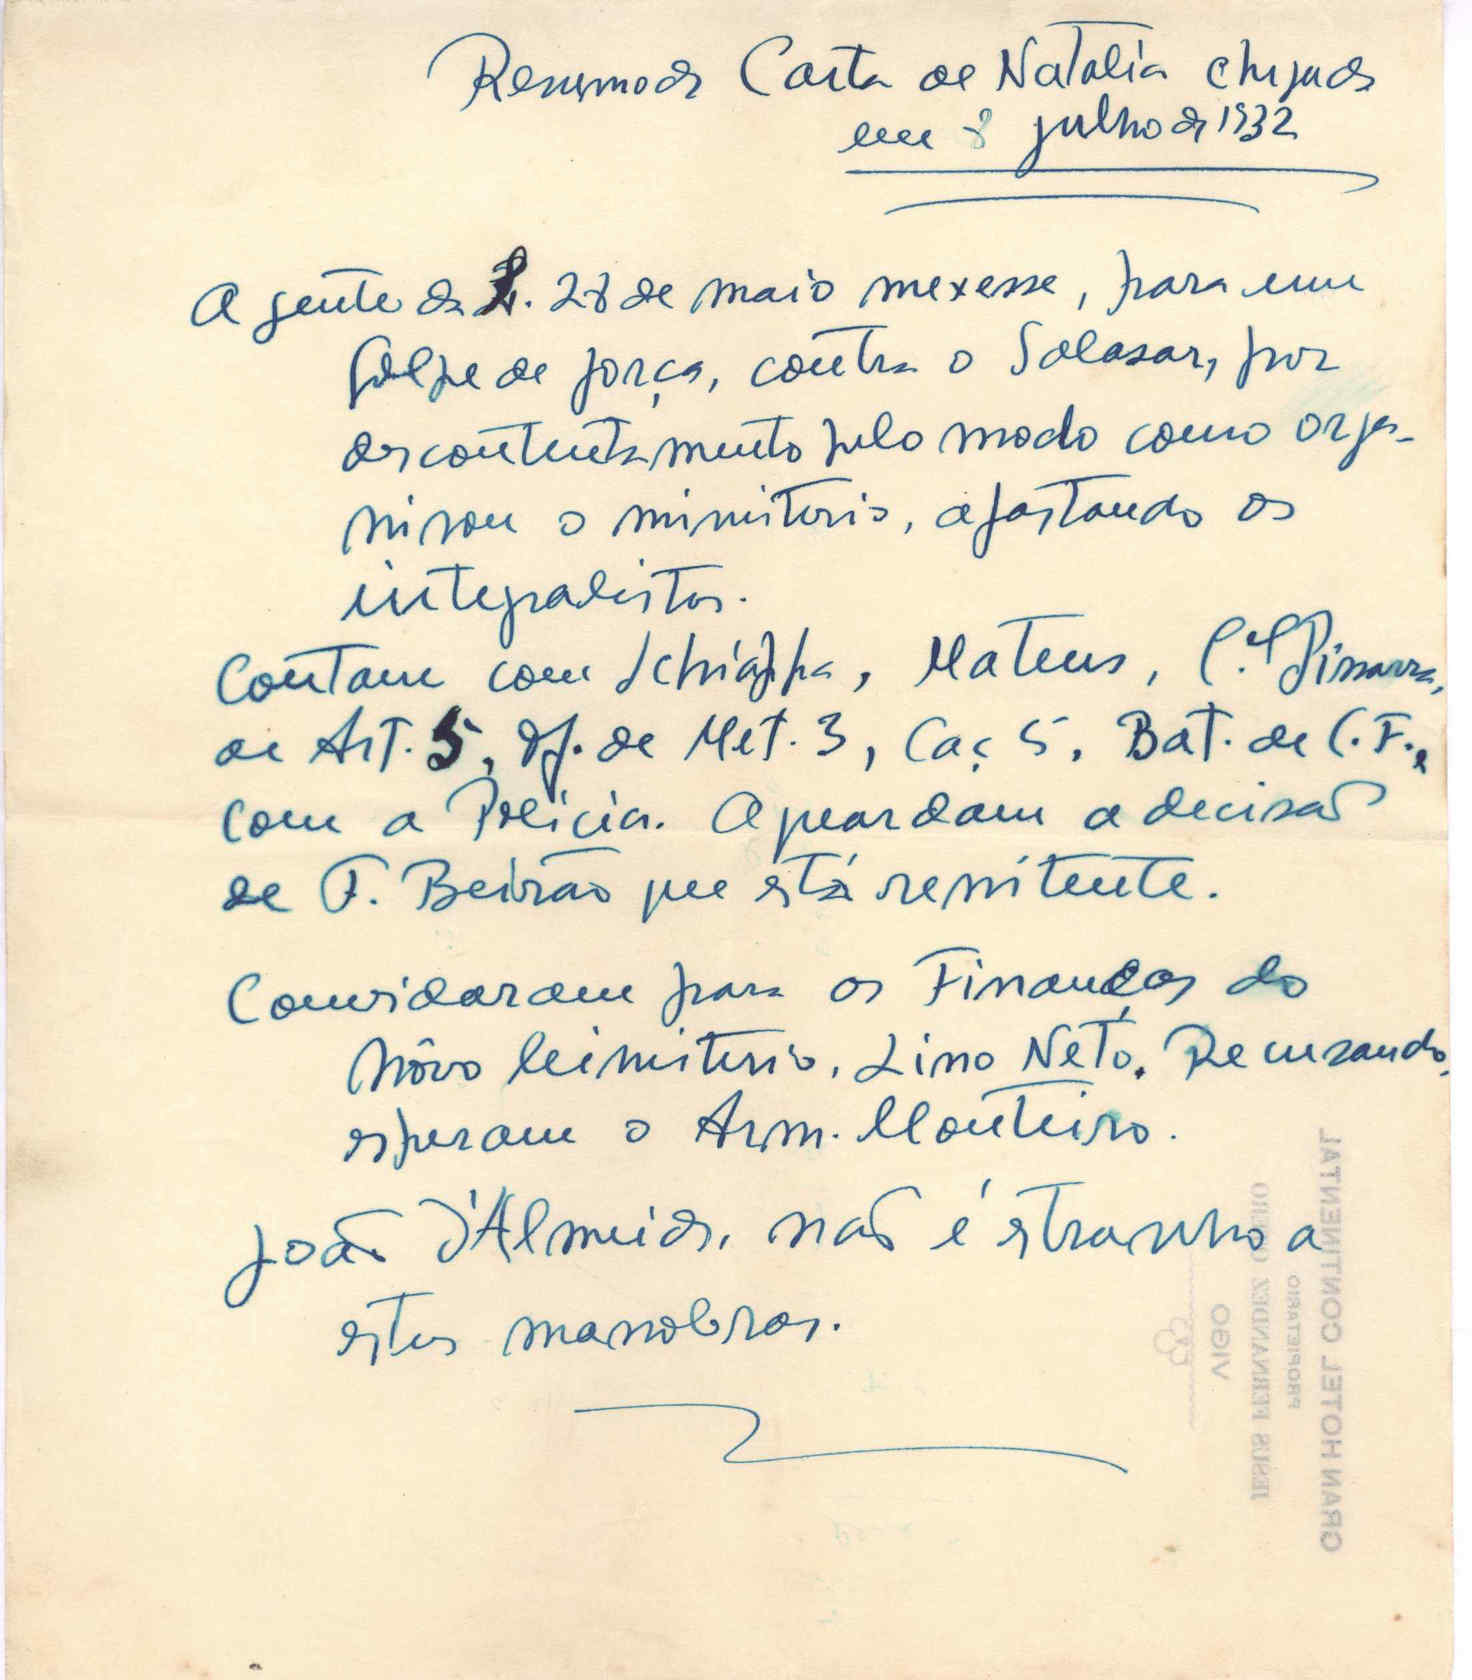 Resumo da Carta de Natalia chegada
em 8 julho de 1932
A gente da L. 28 de maio mexesse, para um
Golpe de força, contra o Salasar, por
descontentamento pelo modo como orga-
nisou o ministerio, afastando os
integralistas.
Contam com Schiappa, Mateus, C.el Pissarra,
de Art. 5, of. de Met. 3, Caç 5, Bat. de C. F. e
com a Policia. Aguardam a decisaõ
de F. Beirão que está renitente.
Convidaram para as Finanças do
nôvo Ministerio, Lino Neto. Recusando,
esperam o Arm. Monteiro.
João d'Almeida, naõ é estranho a
estas manobras.
GRAN HOTEL CONTINENTAL
PROPIETARIO
JESUS FERNANDEZ
VIGO